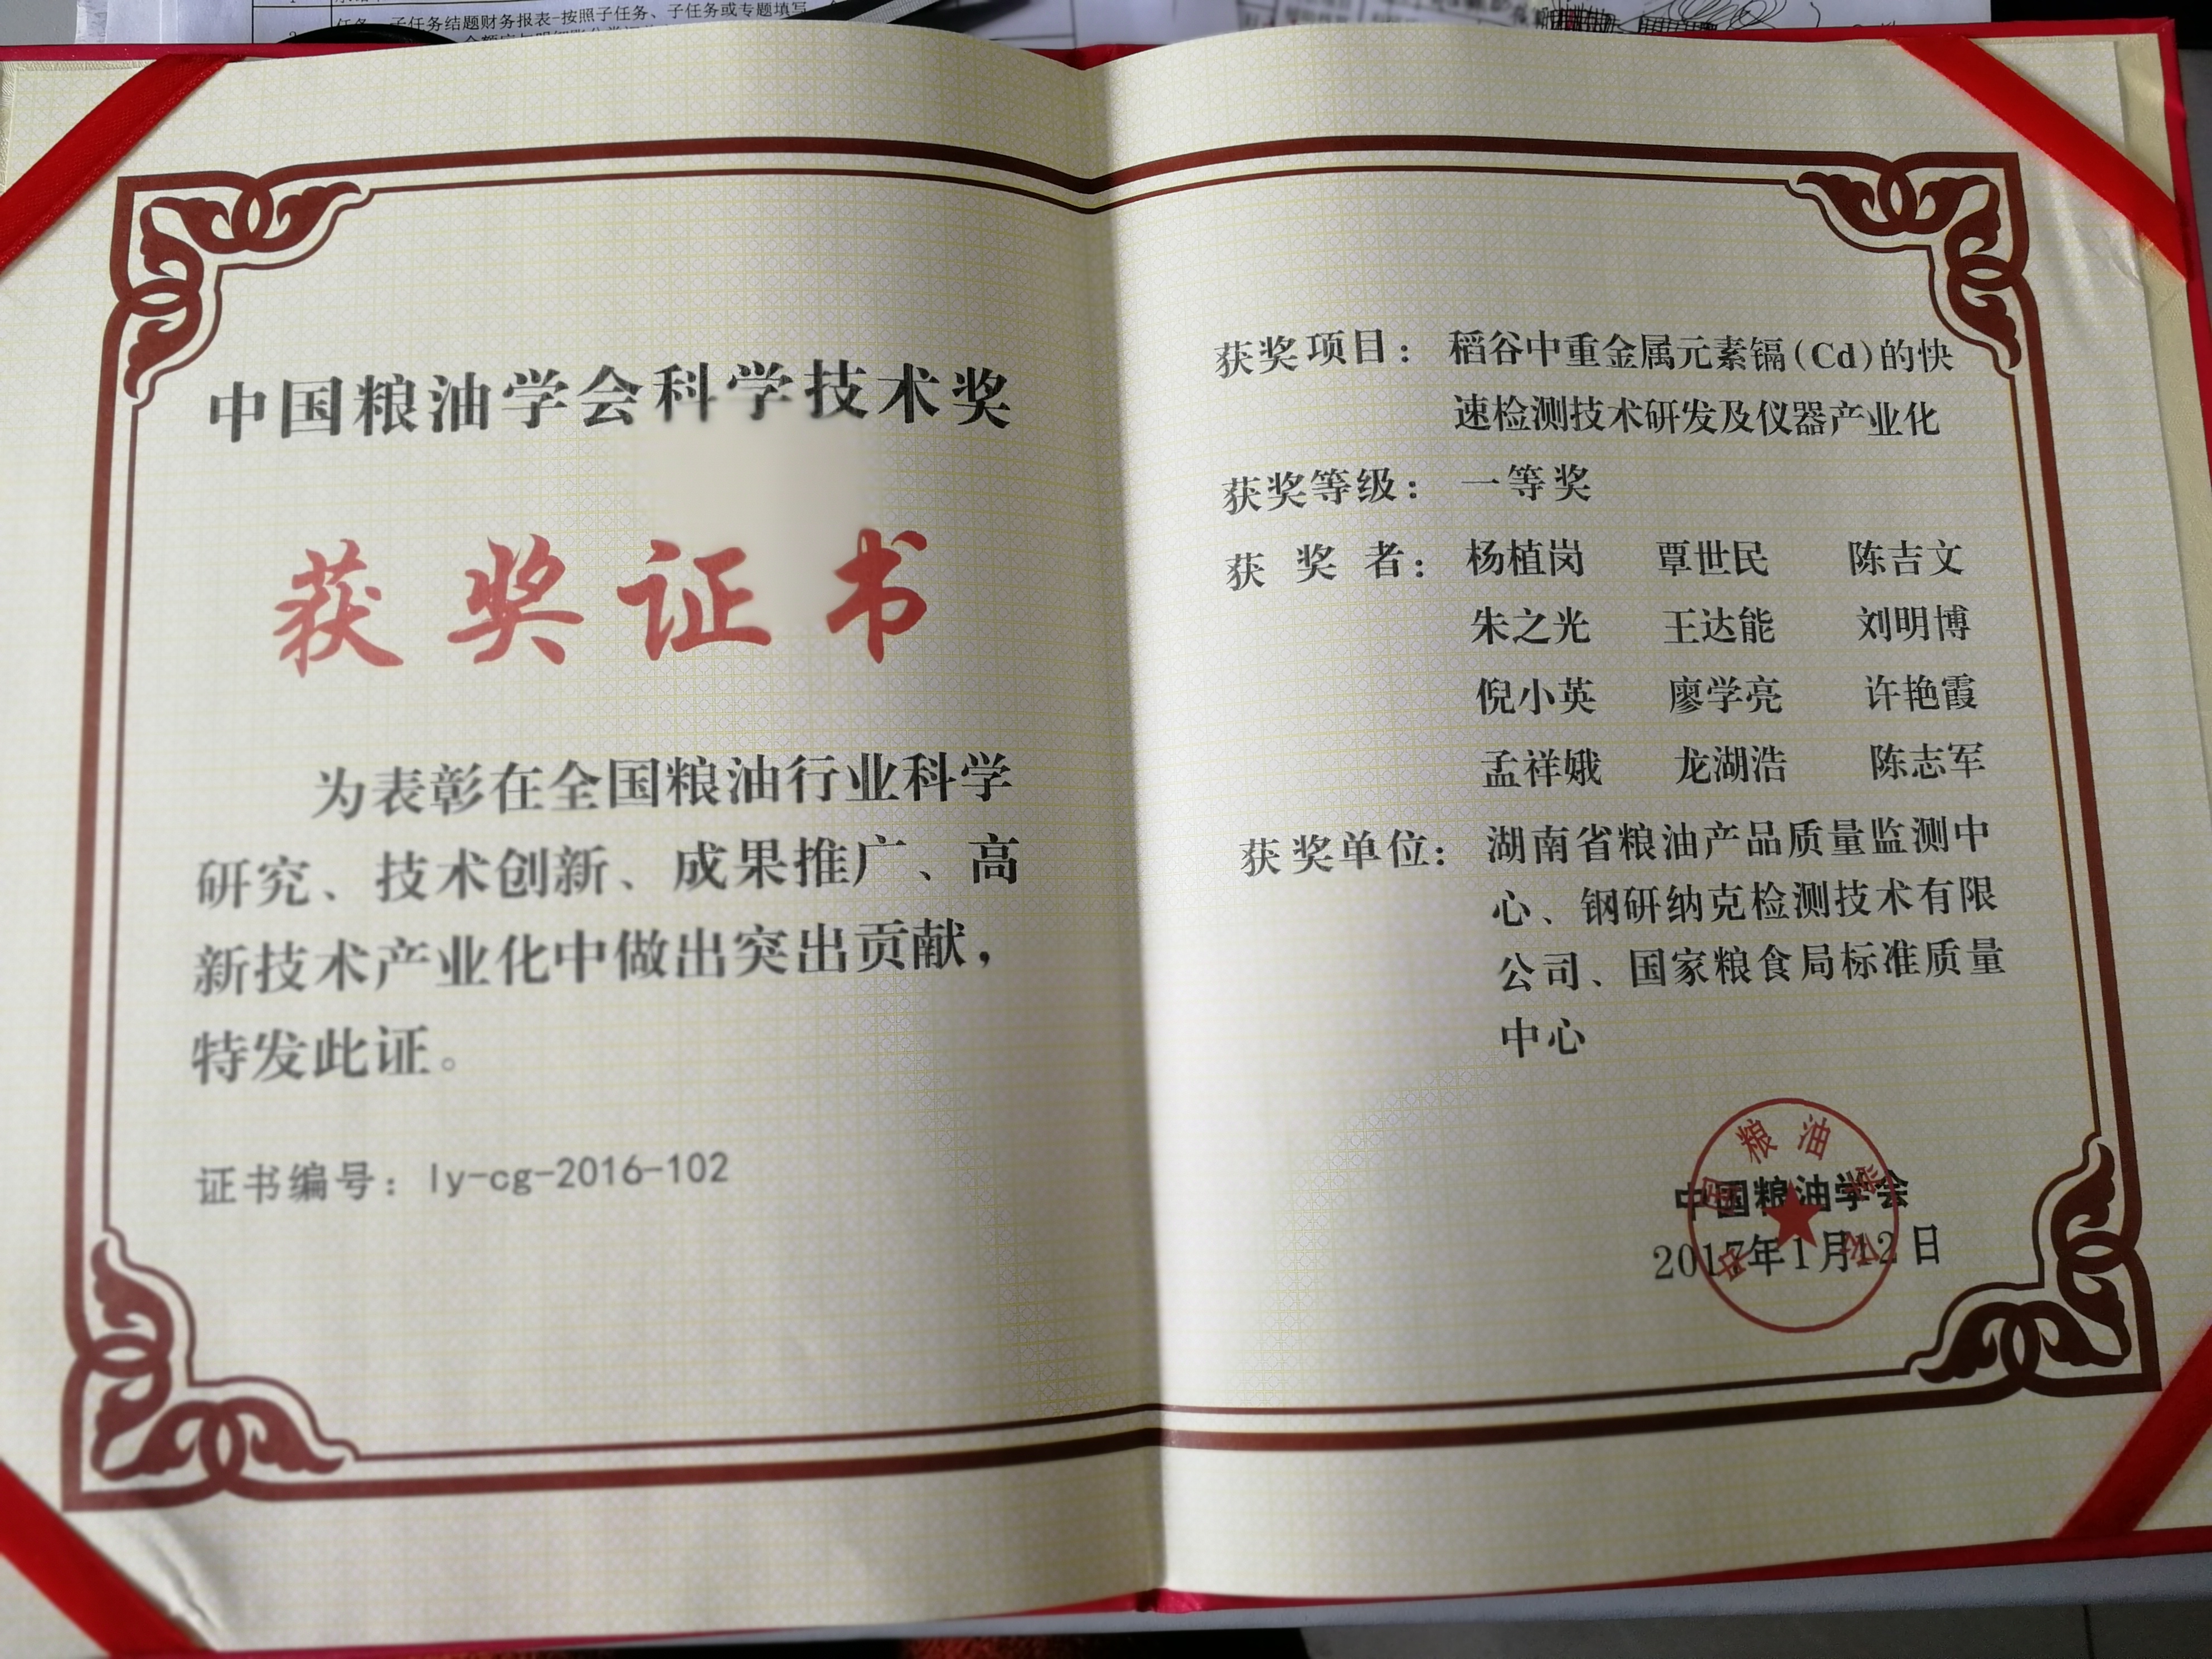 任务、子任务结题财务报表-按照子任务、子任务或专题填写
中国粮油学会科学技术奖
获奖证书
为表彰在全国粮油行业科学
研究、技术创新、成果推广、高
新技术产业化中做出突出贡献，
特发此证。
证书编号：ly-cg-2016-102
获奖项目：稻谷中重金属元素镉(Cd)的快
速检测技术研发及仪器产业化
获奖等级：一等奖
获奖者：杨植岗 覃世民 陈吉文
朱之光 王达能 刘明博
倪小英 廖学亮 许艳霞
孟祥娥 龙湖浩 陈志军
获奖单位：湖南省粮油产品质量监测中
心、钢研纳克检测技术有限
公司、国家粮食局标准质量
中心
中国粮油学会
2017年1月12日
中国粮油学会